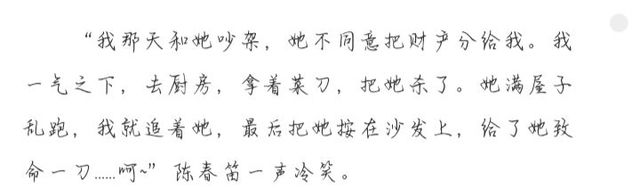 “我那天和她吵架，她不同意把财产分给我。我
一气之下，去厨房，拿着菜刀，把她杀了。她满屋子
乱跑，我就追着她，最后把她按在沙发上，给了她致
命一刀……呵~”陈春笛一声冷笑。